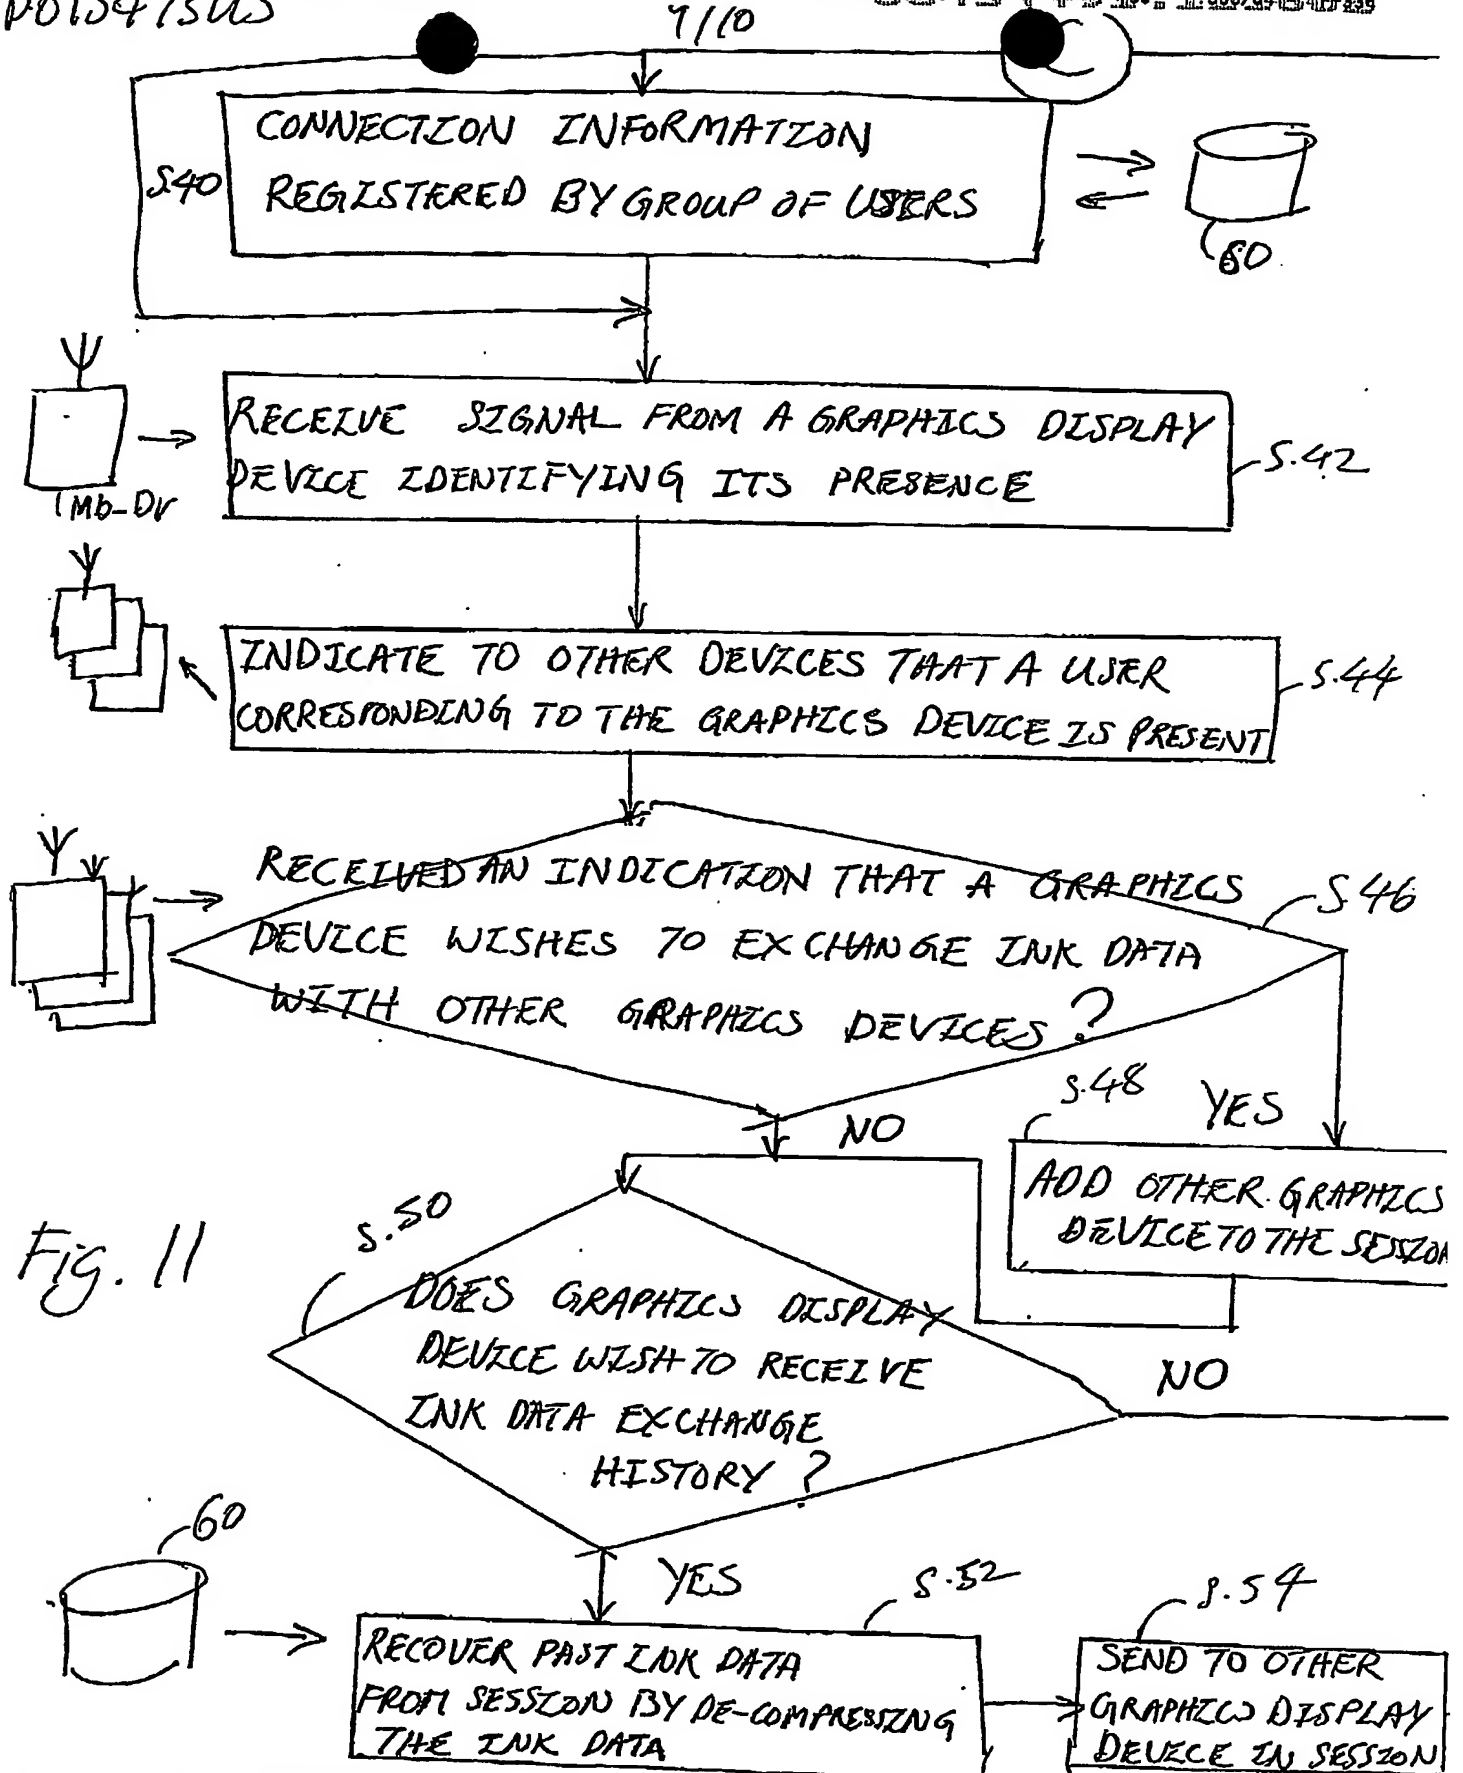 9/10
CONNECTION INFORMATION
S.40
REGISTERED BY GROUP OF USERS
60
RECEIVE SIGNAL FROM A GRAPHICS DISPLAY
DEVICE IDENTIFYING ITS PRESENCE
S.42
INDICATE TO OTHER DEVICES THAT A USER
CORRESPONDING TO THE GRAPHICS DEVICE IS PRESENT
S.44
RECEIVED AN INDICATION THAT A GRAPHICS
DEVICE WISHES TO EXCHANGE INK DATA
WITH OTHER GRAPHICS DEVICES?
S.46
NO
S.48
YES
ADD OTHER GRAPHICS
DEVICE TO THE SESSION
Fig. 11
S.50
DOES GRAPHICS DISPLAY
DEVICE WISH TO RECEIVE
INK DATA EXCHANGE
HISTORY?
NO
60
YES
S.52
RECOVER PAST INK DATA
FROM SESSION BY DE-COMPRESSING
THE INK DATA
S.54
SEND TO OTHER
GRAPHICS DISPLAY
DEVICE IN SESSION